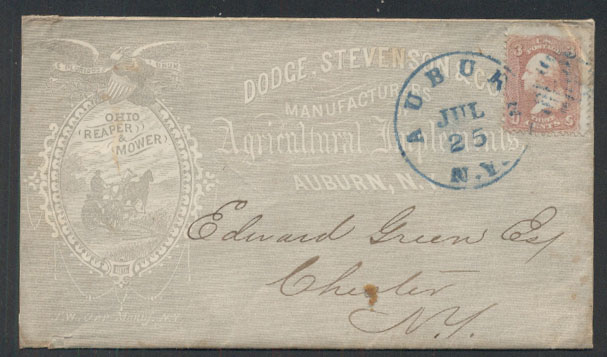 E PLURIBUS UNUM
OHIO
REAPER
&
MOWER
DODGE, STEVENSON & CO.
MANUFACTURERS
Agricultural Implements,
AUBURN, N.Y.
AUBURN
JUL
25
N.Y.
3 3
CENTS
Edward Green Esq
Chester
N.Y.